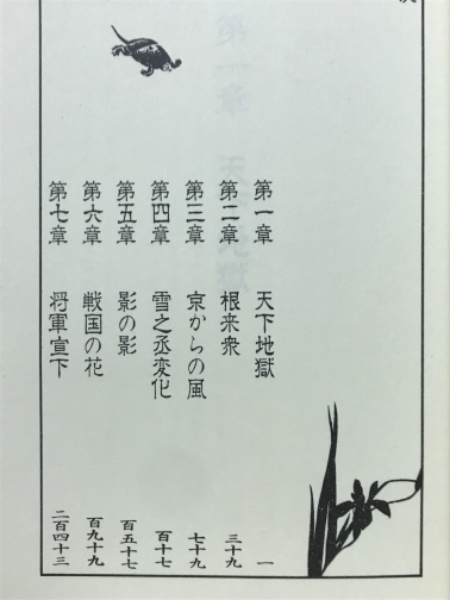 第一章 天下地獄 一
第二章 根来衆 三十九
第三章 京からの風 七十九
第四章 雪之丞変化 百十七
第五章 影の影 百五十七
第六章 戦国の花 百九十九
第七章 将軍宣下 二百四十三